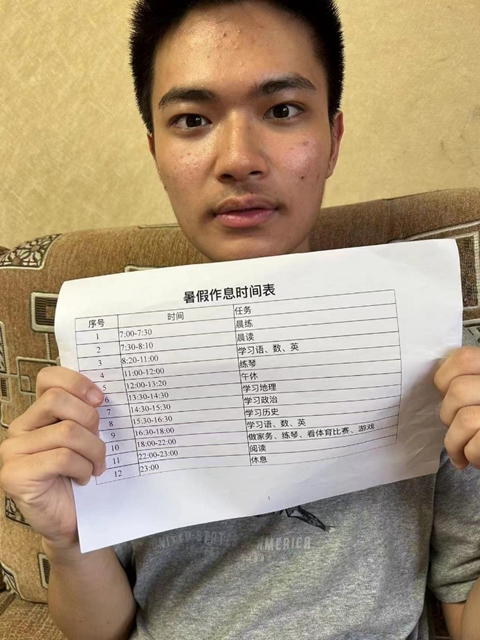 暑假作息时间表
序号 时间 任务
1 7:00-7:30 晨练
2 7:30-8:10 晨读
3 8:20-11:00 学习语、数、英
4 11:00-12:00 练琴
5 12:00-13:20 午休
6 13:30-14:30 学习地理
7 14:30-15:30 学习政治
8 15:30-16:30 学习历史
9 16:30-18:00 学习语、数、英
10 18:00-22:00 做家务、练琴、看体育比赛、游戏
11 22:00-23:00 阅读
12 23:00 休息
1
UNITED STATES AMERICA